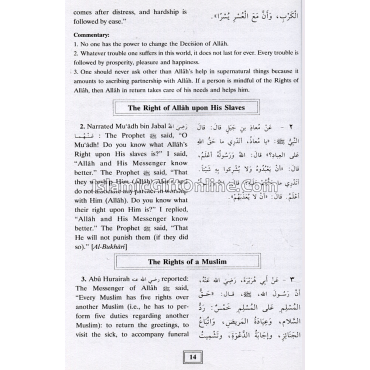 comes after distress, and hardship is
followed by ease."
الْكَرْبِ، وَأَنَّ مَعَ الْعُسْرِ يُسْرًا».
Commentary:
1. No one has the power to change the Decision of Allâh.
2. Whatever trouble one suffers in this world, it does not last for ever. Every trouble is
followed by prosperity, pleasure and happiness.
3. One should never ask other than Allâh's help in supernatural things because it
amounts to ascribing partnership with Allâh. If a person is mindful of the Rights of
Allâh, then Allâh in return takes care of his needs and helps him.
The Right of Allâh upon His Slaves
2. Narrated Mu'âdh bin Jabal رضي الله
عنهما: The Prophet ﷺ said, "O
Mu'âdh! Do you know what Allâh's
Right upon His slaves is?" I said,
"Allâh and His Messenger know
better." The Prophet ﷺ said, "That
they worship Him (Allâh) Alone and
do not associate any partner in worship
with Him (Allâh). Do you know what
their right upon Him is?" I replied,
"Allâh and His Messenger know
better." The Prophet ﷺ said, "That
He will not punish them (if they did
so)." [Al-Bukhâri]
٢ - عَنْ مُعَاذِ بْنِ جَبَلٍ قَالَ: قَالَ
النَّبِيُّ ﷺ: «يَا مُعَاذُ، أَتَدْرِي مَا حَقُّ اللهِ
عَلَى الْعِبَادِ؟» قَالَ: اللهُ وَرَسُولُهُ أَعْلَمُ،
قَالَ: «أَنْ يَعْبُدُوهُ وَلَا يُشْرِكُوا بِهِ شَيْئًا،
أَتَدْرِي مَا حَقُّهُمْ عَلَيْهِ؟» قَالَ: اللهُ وَرَسُولُهُ
أَعْلَمُ. قَالَ: «أَنْ لَا يُعَذِّبَهُمْ».
IslamicGiftOnline.com
The Rights of a Muslim
3. Abû Hurairah رضي الله عنه reported:
The Messenger of Allâh ﷺ said,
"Every Muslim has five rights over
another Muslim (i.e., he has to per-
form five duties regarding another
Muslim): to return the greetings, to
visit the sick, to accompany funeral
٣ - عَنْ أَبِي هُرَيْرَةَ، رَضِيَ اللهُ عَنْهُ،
أَنَّ رَسُولَ اللهِ، ﷺ، قَالَ: «حَقُّ
الْمُسْلِمِ عَلَى الْمُسْلِمِ خَمْسٌ: رَدُّ
السَّلَامِ، وَعِيَادَةُ الْمَرِيضِ، وَاتِّبَاعُ
الْجَنَائِزِ، وَإِجَابَةُ الدَّعْوَةِ، وَتَشْمِيتُ
14